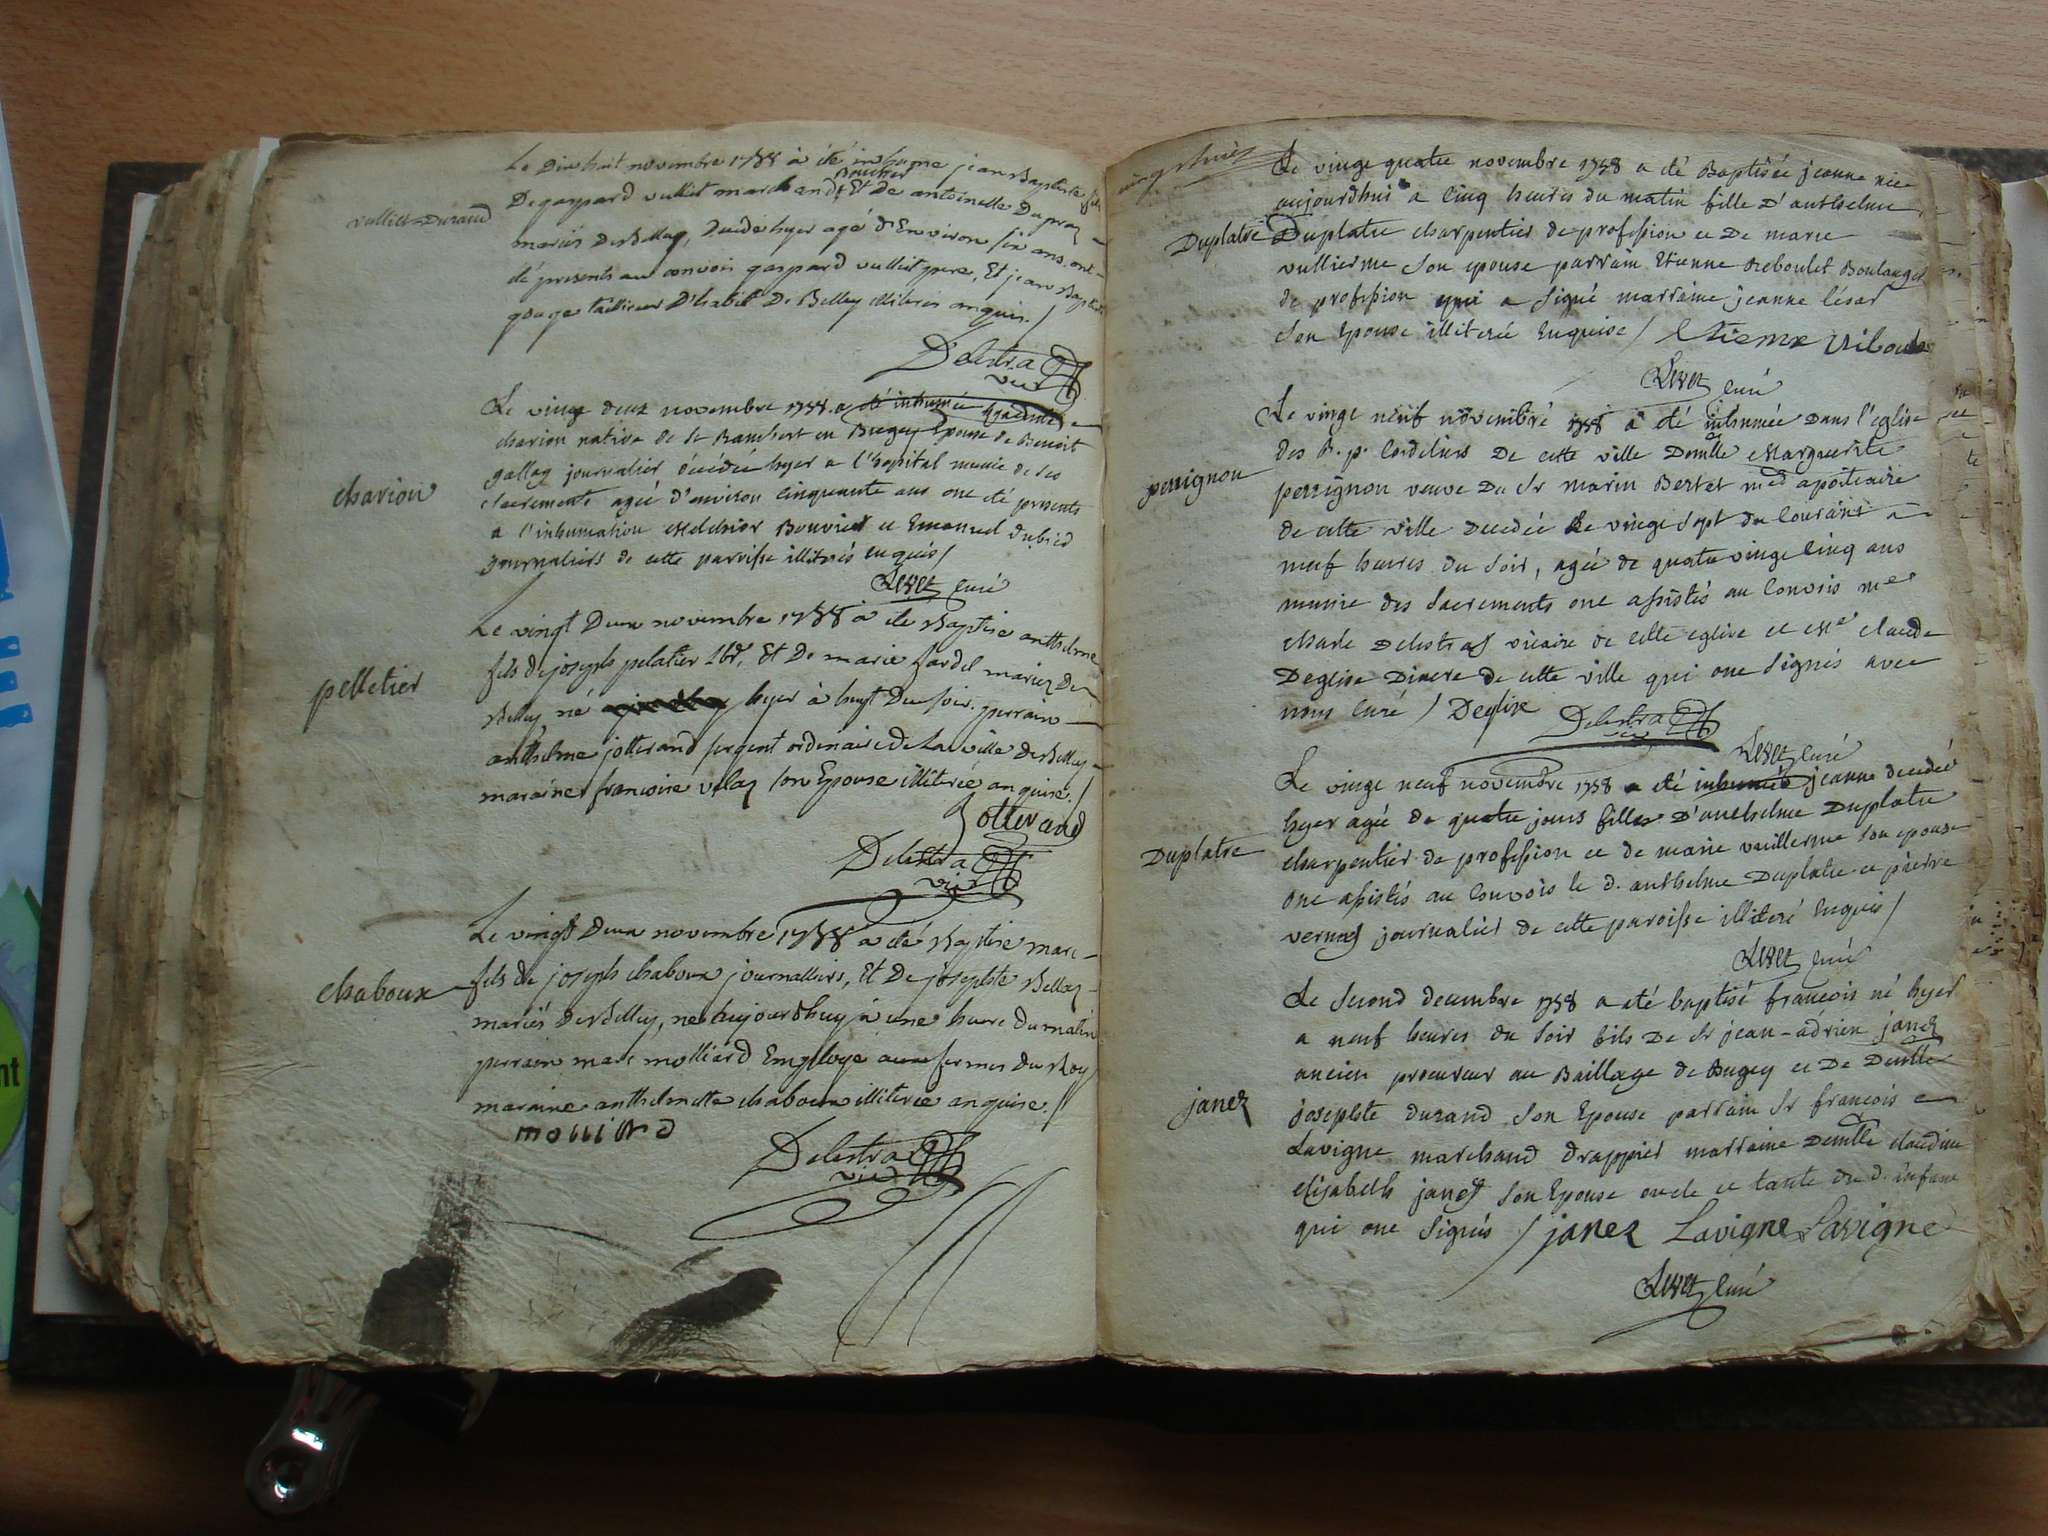 Le Dix huit novembre 1758 à été inhumé jean Baptiste fils
Boucher
De gaspard vulliet marchand Et de antoinette Dupraz
vulliet Durand
mariés de Belley, Decédé hyer agé d'Environ six ans, ont
été presents au convoir gaspard vulliet pere, Et jean Baptiste
tailleur D'habit De Belley illiterés enquis /
Delestra
vic
Le vingt deux novembre 1758 a été inhumée
charion native de St Rambert en Bugey Epouse de Benoit
gallay journalier décédée hyer a l'hopital munie de ses
charion
sacrements agée d'environ cinquante ans ont été presents
a l'inhumation Melchior Bouvier et Emanuel dubied
journaliers de cette paroisse illiterés enquis /
curé
Le vingt Deux novembre 1758 à été Baptisé anthelme
fils de joseph pelatier Et De marie fardel mariez De
pelletier
Belley né hyer à huit Du soir. parrain
anthelme jotterand sergent ordinaire de La ville de Belley
maraine francoise velaz son Epouse illiterée anquise. /
Jotterand
Delestra
vic
Le vingt Deux novembre 1758 a été Baptisé marc
fils de joseph chaboux journalliers, Et De josephte Bellay
chaboux
mariés De Belley, né aujourdhuy à une heure du matin
parrain marc molliard Employé aux fermes du Roy
maraine anthelmette chaboux illiterée anquise. /
molliard
Delestra
vic
Le vingt quatre novembre 1758 a été Baptisée jeanne née
aujourdhui a cinq heures du matin fille d'anthelme
Duplatre
Duplatre charpentier de profession et De marie
vullierme son epouse parrain Etienne Reboulet Boulanger
de profession qui a signé marraine jeanne césar
son Epouse illiterée Enquise /
curé
Le vingt neuf novembre 1758 a été inhumée Dans l'eglise
des R. p. Cordeliers De cette ville Dmlle Marguerite
perrignon
perrignon veuve Du Sr marin Bertet md apoticaire
de cette ville Decedée Le vingt sept du courant a
neuf heures du soir, agée de quatre vingt cinq ans
munie des sacrements ont assistés au convois me
charle Delestraz vicaire de cette eglise et Me claude
Deglise Diacre de cette ville qui ont signés avec
nous curé / Deglise Delestra
vic
curé
Le vingt neuf novembre 1758 a été inhumée jeanne decedée
hyer agée de quatre jours fille d'anthelme Duplatre
Duplatre
charpentier de profession et de marie vuillerme son epouse
ont assistés au convois le d. anthelme Duplatre et pierre
vernay journalier de cette paroisse illiteré Enquis /
curé
Le second decembre 1758 a été baptisé francois né hyer
a neuf heures du soir fils De Sr jean-adrien janez
ancien procureur au Baillage de Bugey et De Demlle
janez
josephte durand son Epouse parrain Sr francois
Lavigne marchand drappier marraine Demlle claudine
elizabeth janez son Epouse oncle et tante du d. infant
qui ont signés / janez Lavigne Lavigne
curé